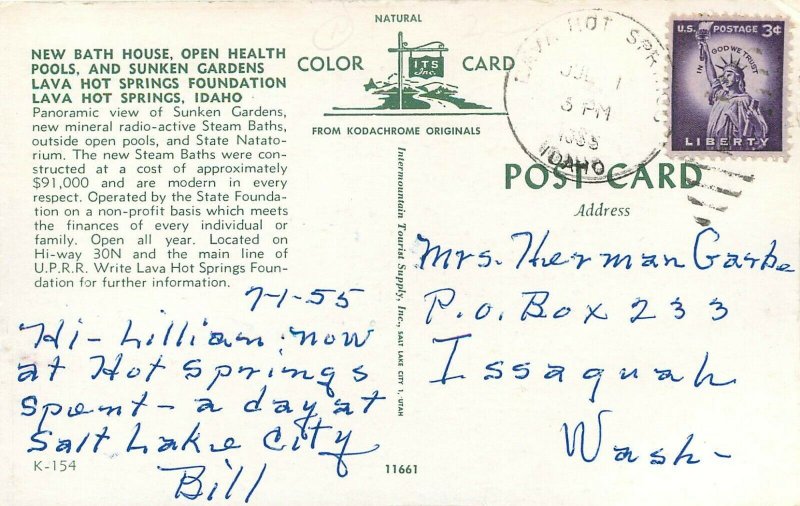 NEW BATH HOUSE, OPEN HEALTH
POOLS, AND SUNKEN GARDENS
LAVA HOT SPRINGS FOUNDATION
LAVA HOT SPRINGS, IDAHO
Panoramic view of Sunken Gardens,
new mineral radio-active Steam Baths,
outside open pools, and State Natato-
rium. The new Steam Baths were con-
structed at a cost of approximately
$91,000 and are modern in every
respect. Operated by the State Founda-
tion on a non-profit basis which meets
the finances of every individual or
family. Open all year. Located on
Hi-way 30N and the main line of
U.P.R.R. Write Lava Hot Springs Foun-
dation for further information.
7-1-55
Hi- Lillian. now
at Hot Springs
spent- a day at
Salt Lake City
Bill
K-154
NATURAL
COLOR CARD
ITS
Inc.
FROM KODACHROME ORIGINALS
Intermountain Tourist Supply, Inc., SALT LAKE CITY 1, UTAH
11661
LAVA HOT SPRINGS
JUL 1
5 PM
1955
IDAHO
U.S. POSTAGE 3¢
IN GOD WE TRUST
LIBERTY
POST CARD
Address
Mrs. Herman Garbe
P.O. Box 233
Issaquah
Wash-